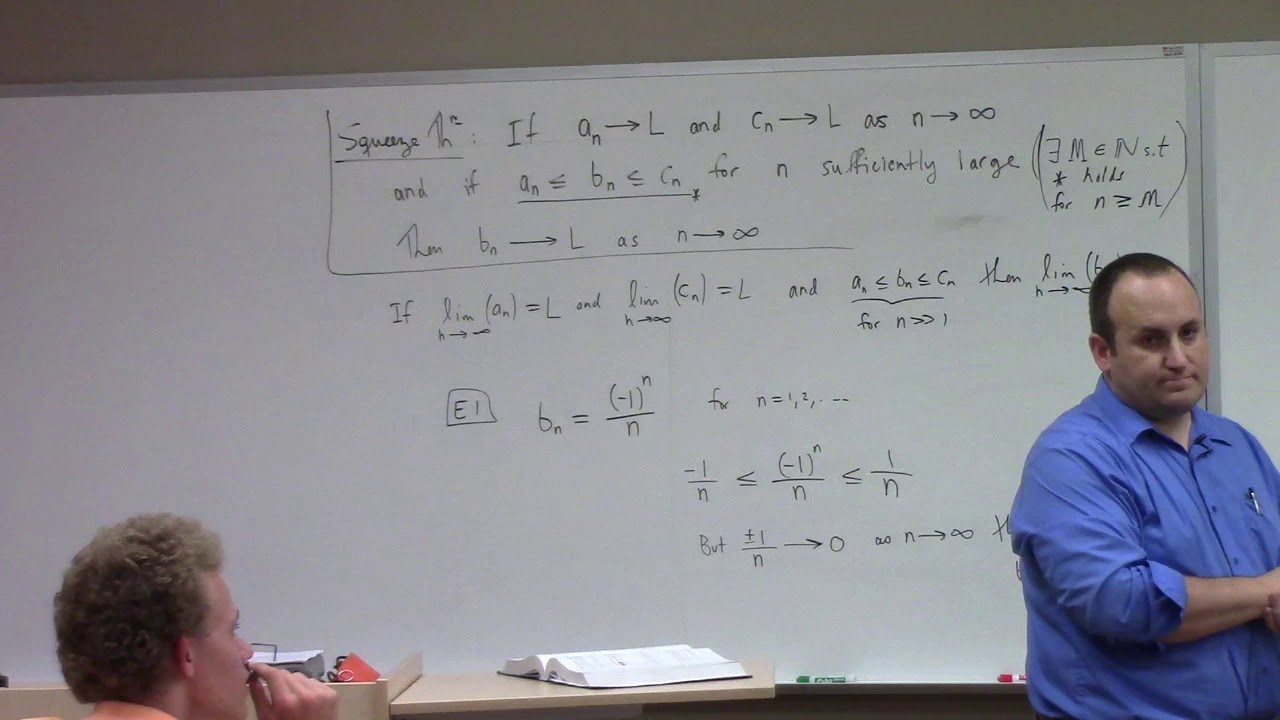 Squeeze Thm: If aₙ → L and cₙ → L as n → ∞
and if aₙ ≤ bₙ ≤ cₙ * for n sufficiently large (∃ M ∈ ℕ s.t
* holds
for n ≥ M)
Then bₙ → L as n → ∞
If lim n→∞ (aₙ) = L and lim n→∞ (cₙ) = L and aₙ ≤ bₙ ≤ cₙ then lim n→∞ (b
for n >> 1
E1 bₙ = (-1)ⁿ/n for n = 1, 2, ....
-1/n ≤ (-1)ⁿ/n ≤ 1/n
But ±1/n → 0 as n → ∞